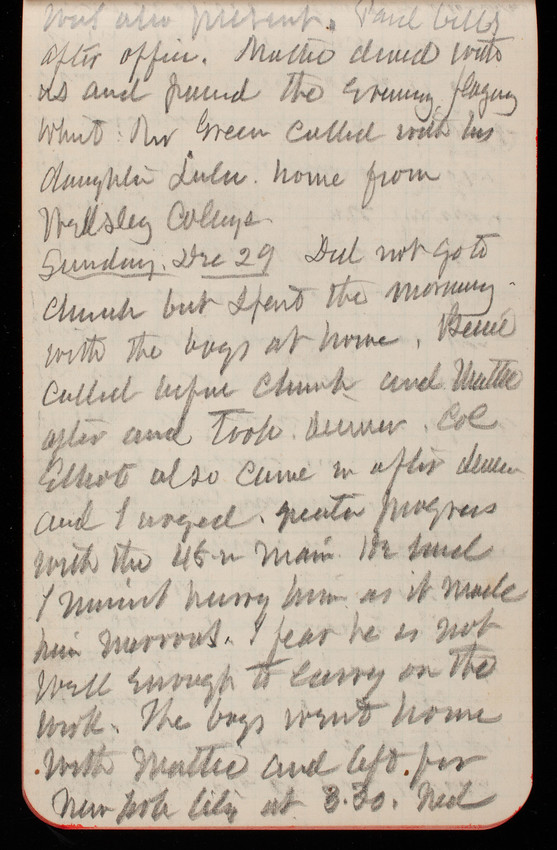 was also present. Paid bills
after office. Mattie dined with
us and passed the Evening playing
Whist. Mr Green called with his
daughter Lulu. home from
Wellsley College
Sunday. Dec 29 Did not go to
church but spent the morning
with the boys at home. Bessie
called before church and Mattie
after and took dinner. Col
Elliott also came in after dinner
and I urged. greater progress
with the 45 in main. He said
I mustnt hurry him as it made
him nervous. I fear he is not
well enough to carry on the
work. The boys went home
with Mattie and left for
New York City at 3.30. Ned